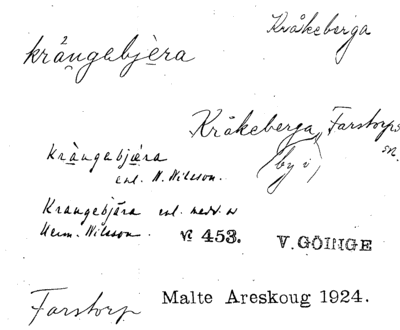 Kråkeberga
krångebjèra
Kråkeberga, Farstorps
(by i)
sn.
Krångebjära
enl. N. Nilsson.
Krangebjära enl. medd. av
Herm. Nilsson.
№ 453.
V. GÖINGE
Farstorp
Malte Areskoug 1924.